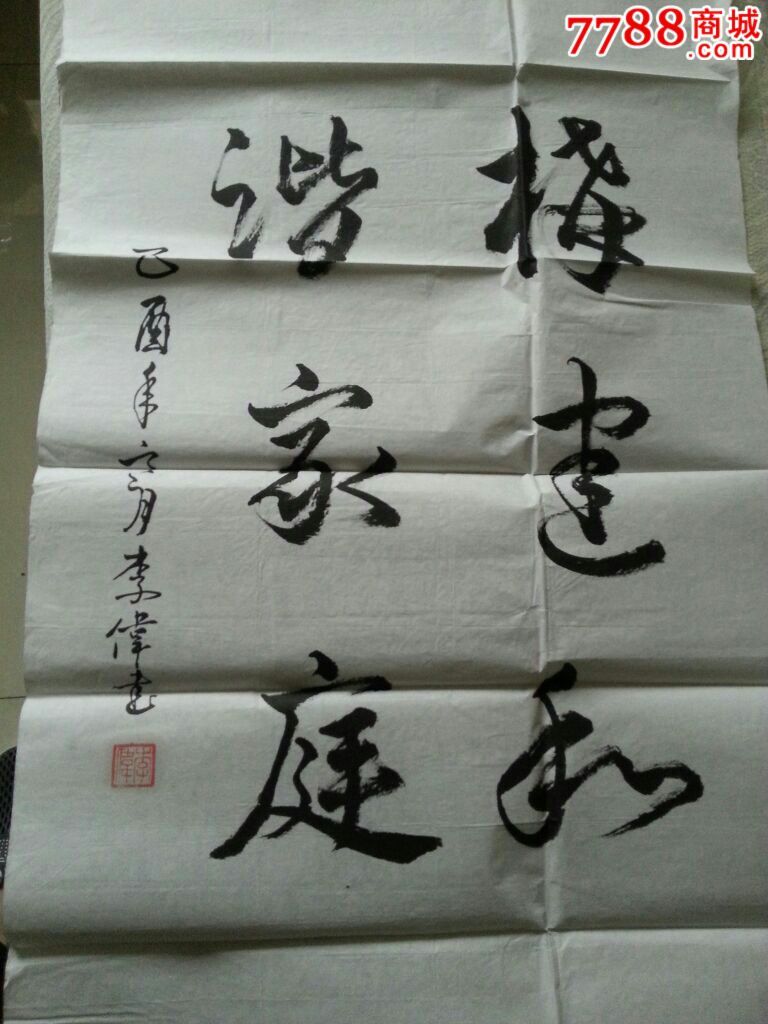 構建和
諧家庭
乙酉年六月李偉書
李偉
7788商城
.com